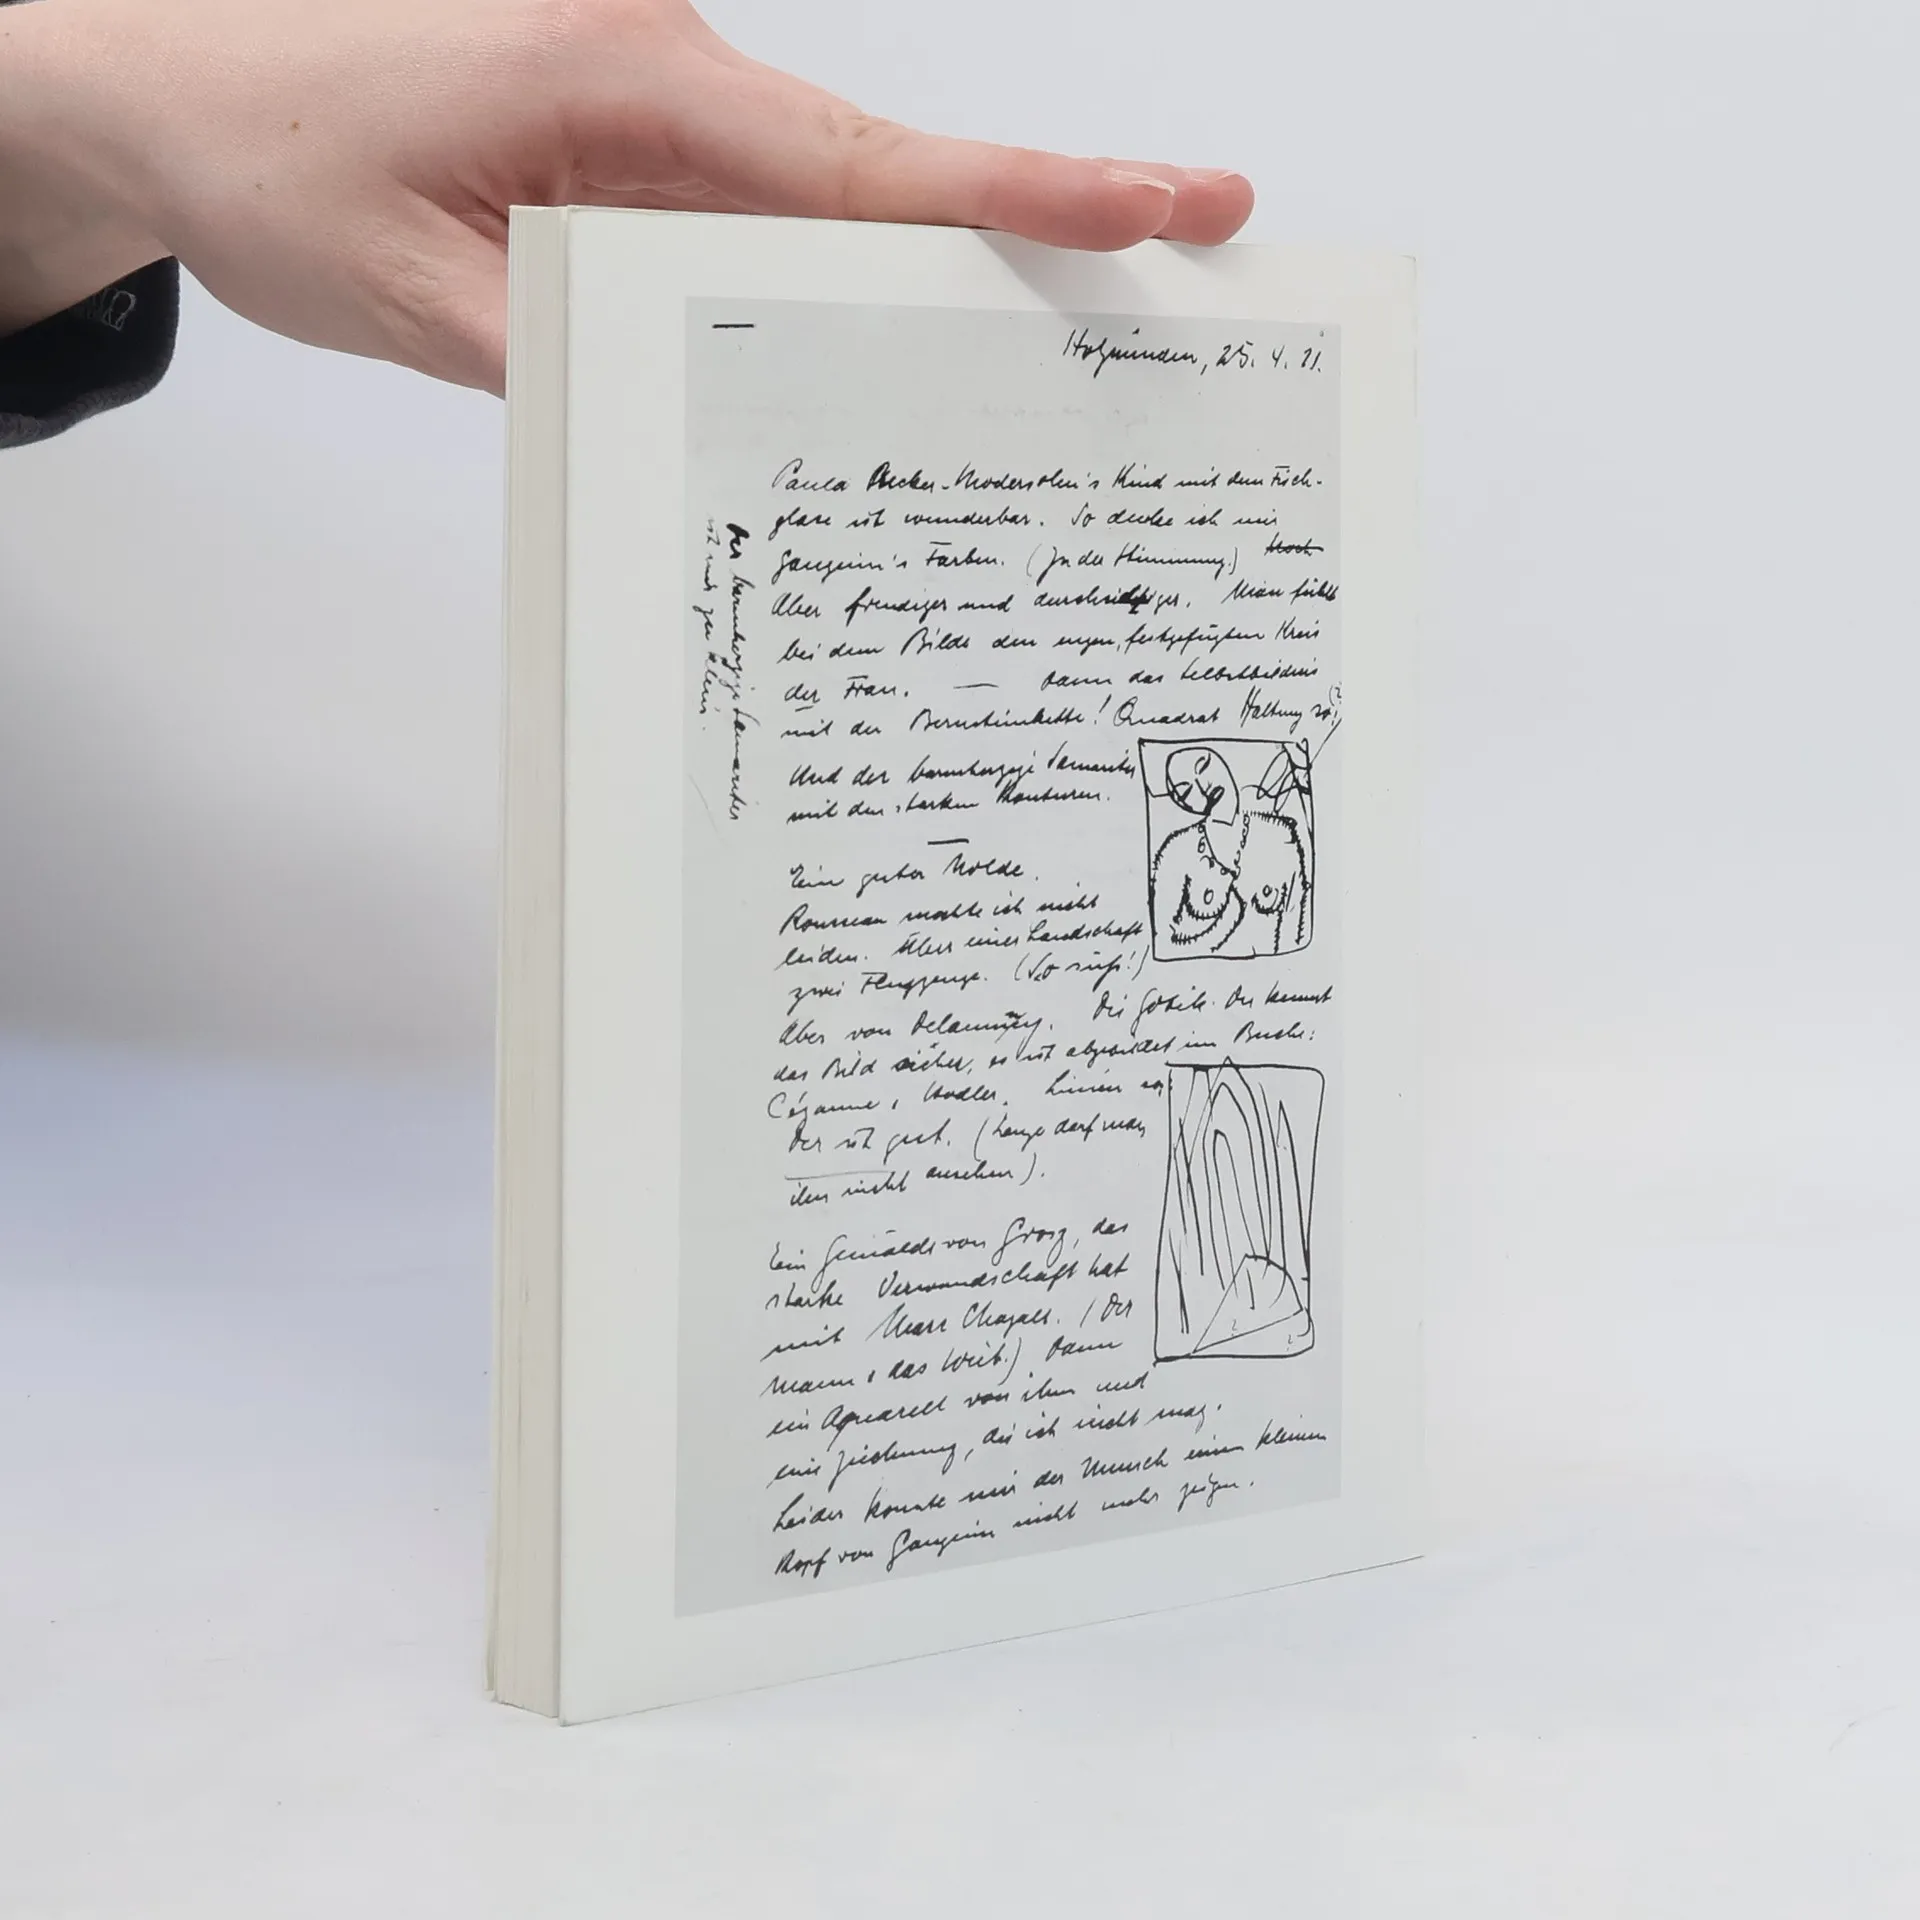 Holzminden, 25. 4. 21.
Paula Becker-Modersohn's Kind mit dem Fisch-
glase ist wunderbar. So denke ich mir
Gauguin's Farben. (In der Stimmung.) Noch
Aber freudiger und durchsichtiger. Man fühlt
bei dem Bilde den engen, festgefügten Kreis
der Frau. — Dann das Selbstbildnis
mit der Bernsteinkette! Quadrat Haltung so:
Und der barmherzige Samariter
mit den starken Konturen.
Ein guter Nolde.
Rousseau mochte ich nicht
leiden. Über einer Landschaft
zwei Flugzeuge. (So süß!)
Aber von Delaunay. Die Gotik. Du kennst
das Bild sicher, es ist abgebildet im Buche:
Cézanne, Hodler. Linien so:
Der ist gut. (Lange darf man
ihn nicht ansehen).
Ein Gemälde von Grosz, das
starke Verwandschaft hat
mit Marc Chagall. (Der
Mann, das Weib.) Dann
ein Aquarell von ihm und
eine Zeichnung, die ich nicht mag.
Leider konnte mir der Mensch einen kleinen
Kopf von Gauguin nicht mehr zeigen.
Der barmherzige Samariter
ist mir zu klein.